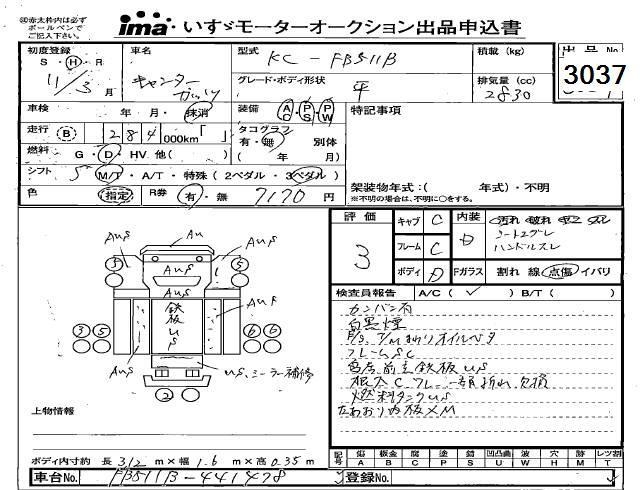 ◎赤太枠内は必ず
ボールペンで
ご記入下さい。
ima いすゞモーターオークション出品申込書
初度登録 車名 型式 KC-FB511B 積載(kg) 出品No
S・H・R
11/3月 キャンター ガッツ グレード・ボディ形状 平 排気量(cc) 2830 3037
車検 年 月・抹消 装備 AC PS PW 特記事項
走行 B 284 000km「 」 タコグラフ
有・無 別体
燃料 G・D・HV.他( ) ( 年 月)
シフト 5 M/T・A/T・特殊(2ペダル・3ペダル) 架装物年式:( 年式)・不明
※不明の場合は、不明に○をする。
色 指定 R券 有・無 7170 円
評価 3 キャブ C 内装 D
フレーム C
シートヤブレ
ハンドルスレ
ボディ D Fガラス 割れ 線 点傷 イバリ
検査員報告 A/C( ✓ ) B/T( )
カンバン有
白黒煙
フレームSC
燃料タンクUS
AUS AU AUS
AUS
3 5
AUS 鉄板US AUS
3 5 6 6
US,ミーラー補修
2
上物情報
ボディ内寸約 長 312 m×幅 1.6 m×高 0.35 m
記号 傷 板金 腐 塗 錆 凹凸曲 波 穴 跡 レツ割
A B C P S U W H M T
車台No. FB511B-441478 登録No.